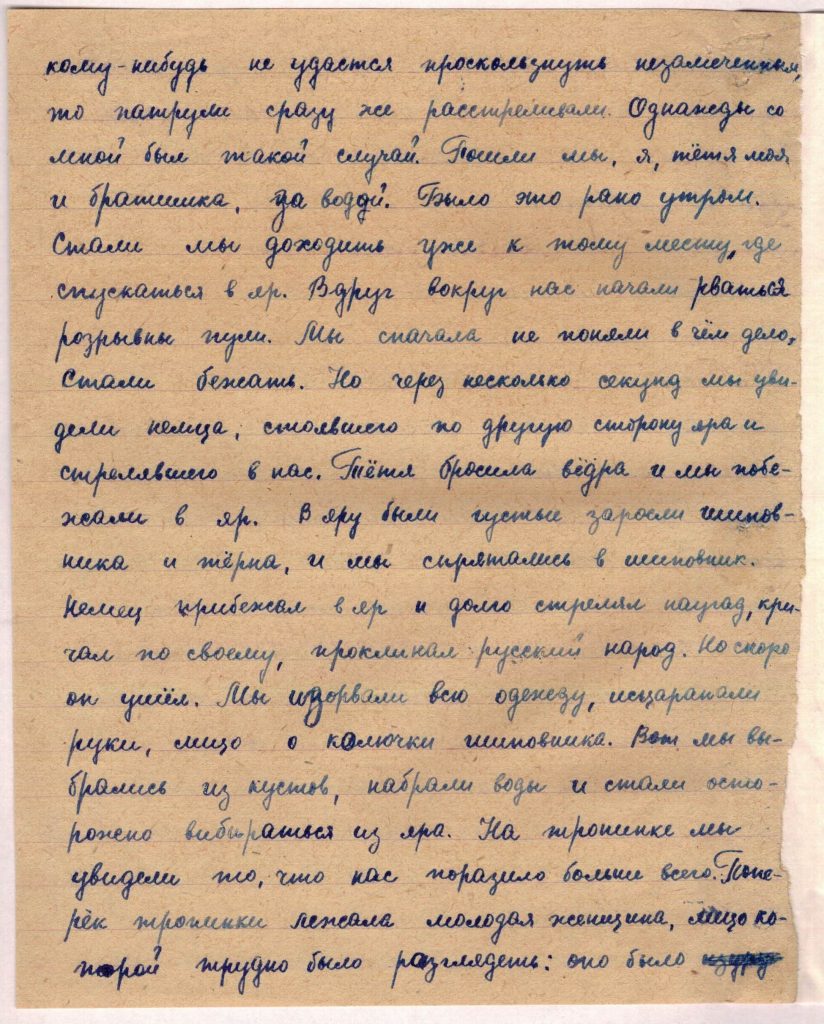 кому-нибудь не удастся проскользнуть незамеченным,
то патрули сразу же расстреливали. Однажды со
мной был такой случай. Пошли мы, я, тётя моя
и братишка, за водой. Было это рано утром.
Стали мы доходить уже к тому месту, где
спускаться в яр. Вдруг вокруг нас начали рваться
розрывны пули. Мы сначала не поняли в чём дело,
стали бежать. Но через несколько секунд мы уви-
дели немца, стоявшего по другую сторону яра и
стрелявшего в нас. Тётя бросила вёдра и мы побе-
жали в яр. В яру были густые заросли шипов-
ника и тёрна, и мы спрятались в шиповник.
Немец прибежал в яр и долго стрелял наугад, кри-
чал по своему, проклинал русский народ. Но скоро
он ушёл. Мы изорвали всю одежду, исцарапали
руки, лицо о колючки шиповника. Вот мы вы-
брались из кустов, набрали воды и стали осто-
рожно вибираться из яра. На тропинке мы
увидели то, что нас поразило больше всего. Попе-
рёк тропинки лежала молодая женщина, лицо ко-
торой трудно было разглядеть: оно было